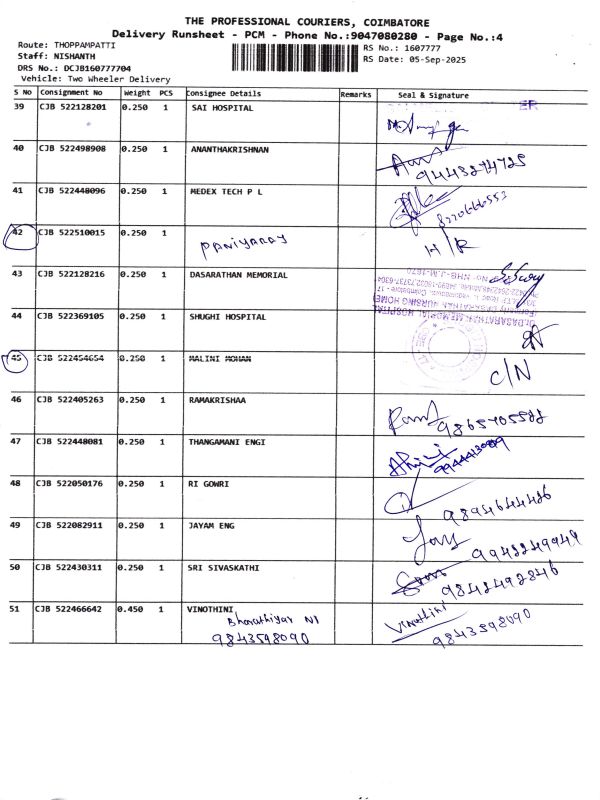 THE PROFESSIONAL COURIERS, COIMBATORE
Delivery Runsheet - PCM - Phone No.:9047080280 - Page No.:4
Route: THOPPAMPATTI
Staff: NISHANTH
DRS No.: DCJB160777704
Vehicle: Two Wheeler Delivery
RS No.: 1607777
RS Date: 05-Sep-2025
S No Consignment No Weight PCS Consignee Details Remarks Seal & Signature
39 CJB 522128201 0.250 1 SAI HOSPITAL
ER
40 CJB 522498908 0.250 1 ANANTHAKRISHNAN
9443274725
41 CJB 522448096 0.250 1 MEDEX TECH P L
8220666553
42 CJB 522510015 0.250 1 H/R
43 CJB 522128216 0.250 1 DASARATHAN MEMORIAL
Dr.DASARATHAN MEMORIAL HOSPITAL
44 CJB 522369105 0.250 1 SHUGHI HOSPITAL
45 CJB 522454654 0.250 1 MALINI MOHAN
C/N
46 CJB 522405263 0.250 1 RAMAKRISHAA
9865705588
47 CJB 522448081 0.250 1 THANGAMANI ENGI
48 CJB 522050176 0.250 1 RI GOWRI
9894644486
49 CJB 522082911 0.250 1 JAYAM ENG
9942249949
50 CJB 522430311 0.250 1 SRI SIVASKATHI
9842492846
51 CJB 522466642 0.450 1 VINOTHINI
Bharathiyar
9843598090
Vinothini
9843598090